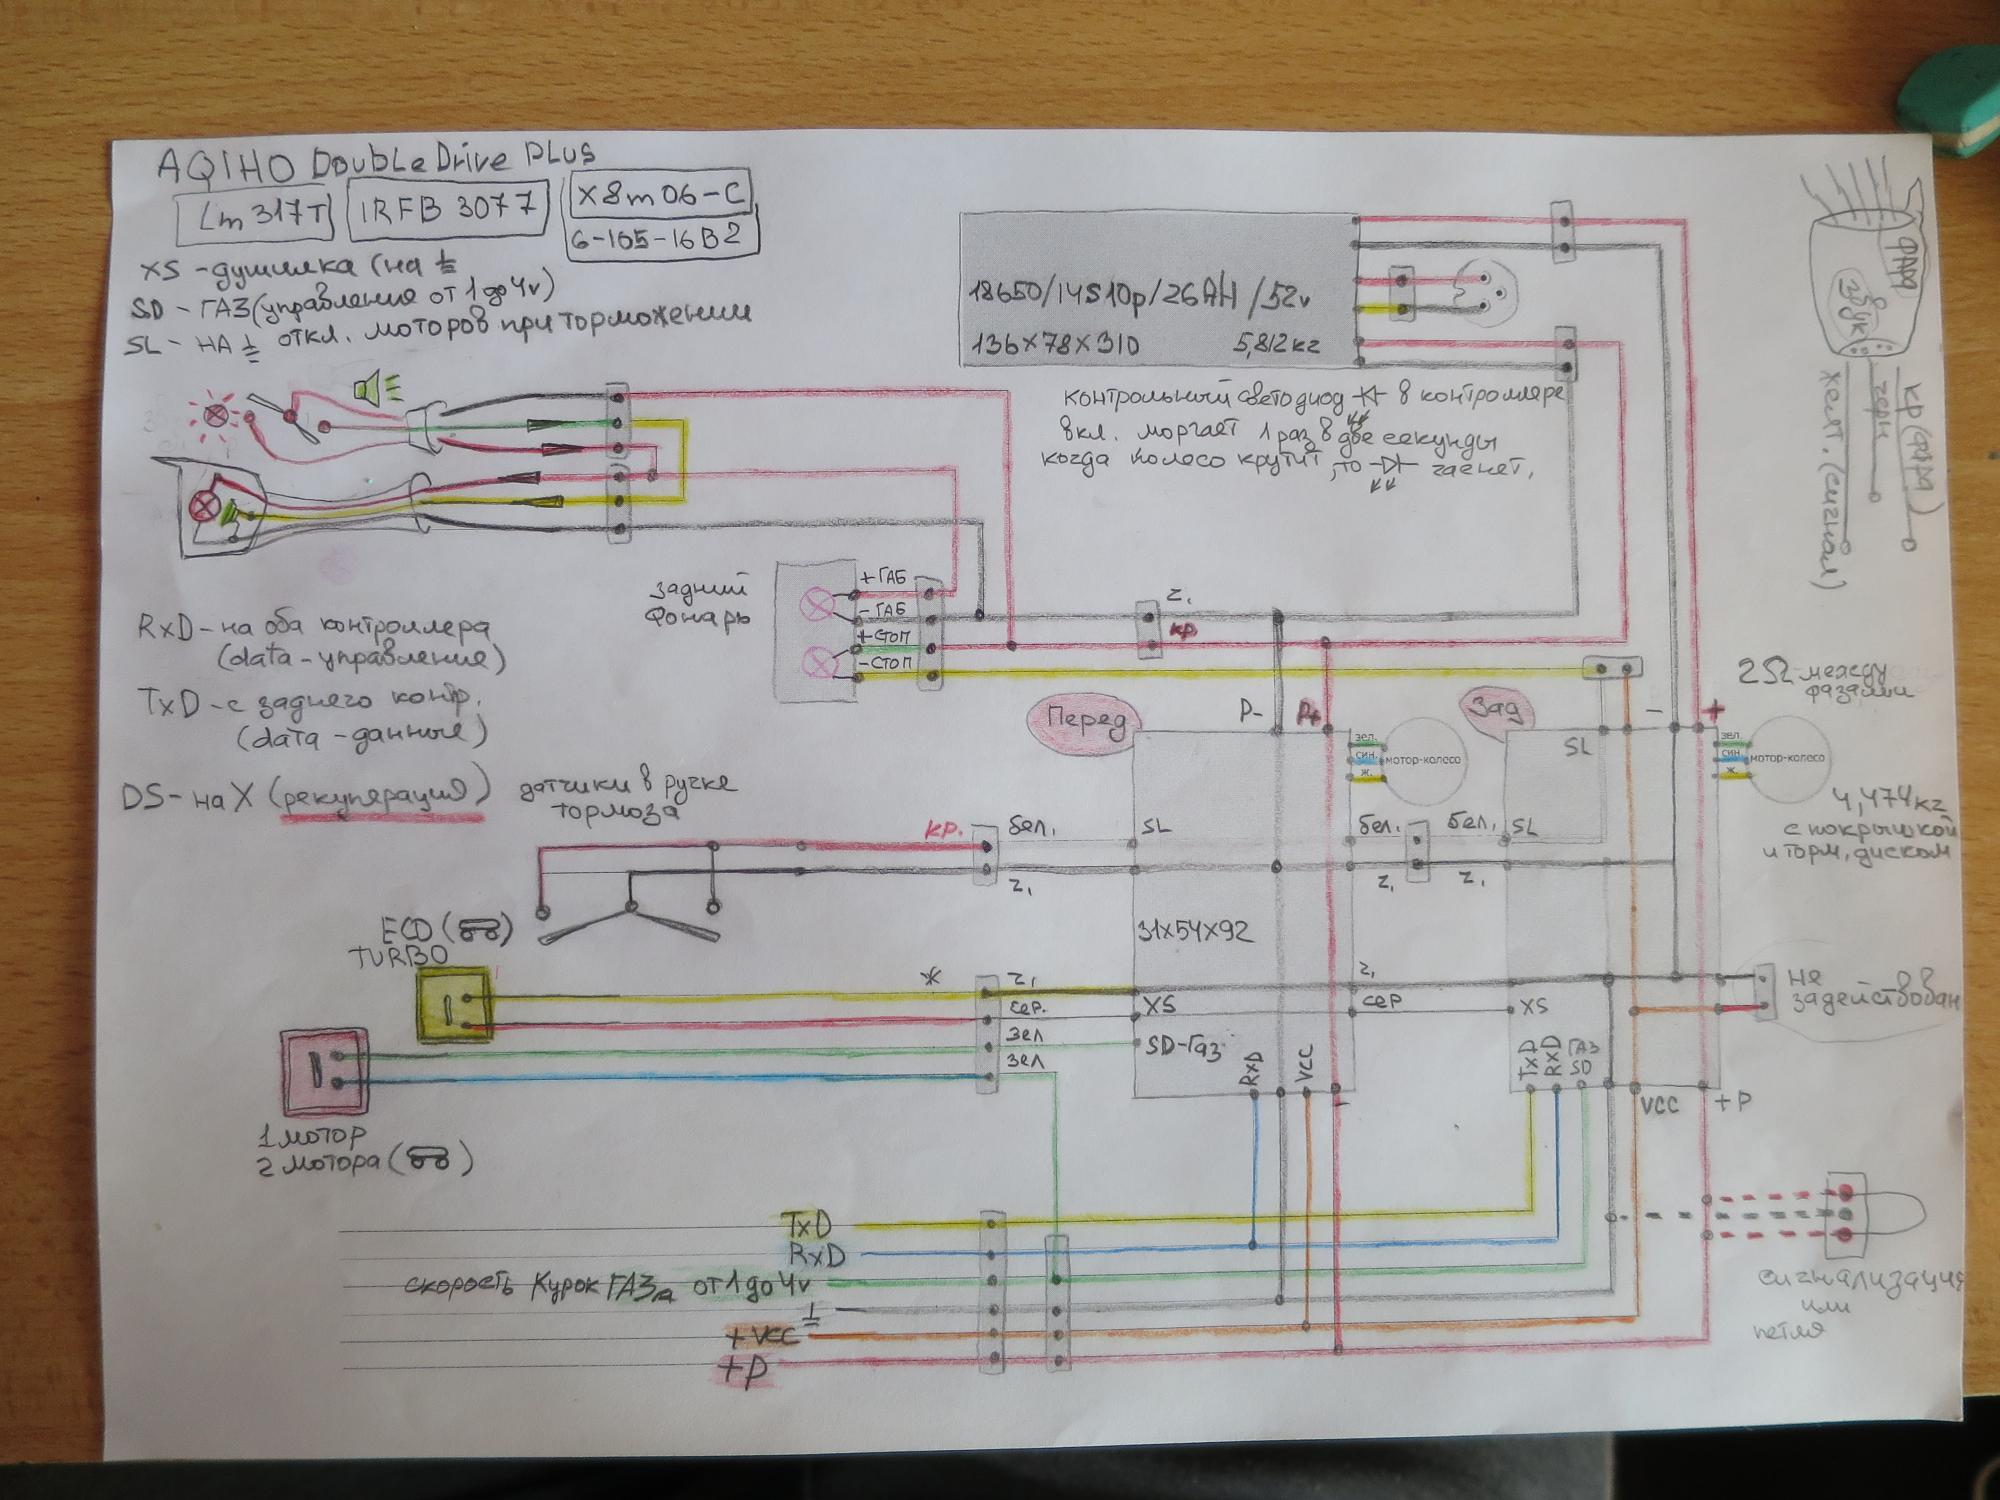 AQIHO DoubleDrive PLus
Lm317T
IRFB 3077
X8m06-C
6-105-16B2
XS -душилка (на
SD - ГАЗ(управления от 1 до 4v)
SL - НА откл. моторов при торможении
18650/14S10p/26AH/52v
136×78×310 5,812кг
контрольный светодиод в контроллере
вкл. моргает 1 раз в две секунды
когда колесо крутит, то гаснет.
ФАРА
звук
кр(ФАРА)
черн
желт.(сигнал)
Задний
Фонарь
+ГАБ
-ГАБ
+СТОП
-СТОП
ч.
кр.
RxD-на оба контроллера
(data-управления)
TxD-с заднего контр.
(data-данные)
DS-на X (рекуперация)
датчики в ручке
тормоза
Перед
P-
P+
зел.
син.
ж.
мотор-колесо
Зад
SL
-
+
зел.
син.
ж.
мотор-колесо
2Ω-между
фазами
4,474кг
с покрышкой
и торм, диском
кр.
бел.
SL
бел.
бел.
SL
ч.
ч.
ч.
31×54×92
ECO
TURBO
ж
ч.
сер.
зел
зел
XS
SD-Газ
RxD
VCC
-
ч.
сер
XS
TxD
RxD
ГАЗ
SD
VCC
+P
не
задействован
1 мотор
2 мотора
TxD
RxD
скорость Курок ГАЗа от 1 до 4v
+VCC
+P
сигнализация
или
петля